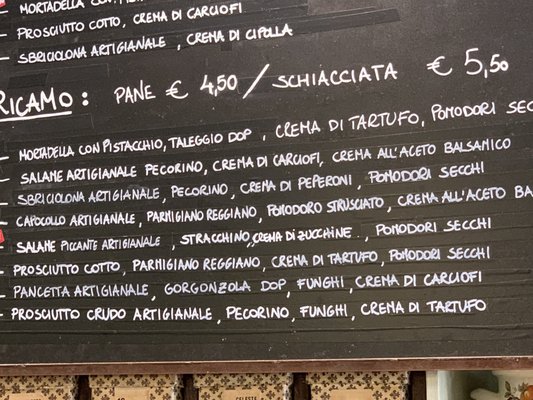 MORTADELLA CON
- PROSCIUTTO COTTO, CREMA DI CARCIOFI
- SBRICIOLONA ARTIGIANALE, CREMA DI CIPOLLA
RICAMO: PANE € 4,50 / SCHIACCIATA € 5,50
- MORTADELLA CON PISTACCHIO, TALEGGIO DOP, CREMA DI TARTUFO, POMODORI SECC
- SALAME ARTIGIANALE PECORINO, CREMA DI CARCIOFI, CREMA ALL'ACETO BALSAMICO
- SBRICIOLONA ARTIGIANALE, PECORINO, CREMA DI PEPERONI, POMODORI SECCHI
- CAPOCOLLO ARTIGIANALE, PARMIGIANO REGGIANO, POMODORO STRUSCIATO, CREMA ALL'ACETO BA
SALAME PICCANTE ARTIGIANALE, STRACCHINO, CREMA DI ZUCCHINE, POMODORI SECCHI
- PROSCIUTTO COTTO, PARMIGIANO REGGIANO, CREMA DI TARTUFO, POMODORI SECCHI
- PANCETTA ARTIGIANALE, GORGONZOLA DOP, FUNGHI, CREMA DI CARCIOFI
- PROSCIUTTO CRUDO ARTIGIANALE, PECORINO, FUNGHI, CREMA DI TARTUFO
CELESTE